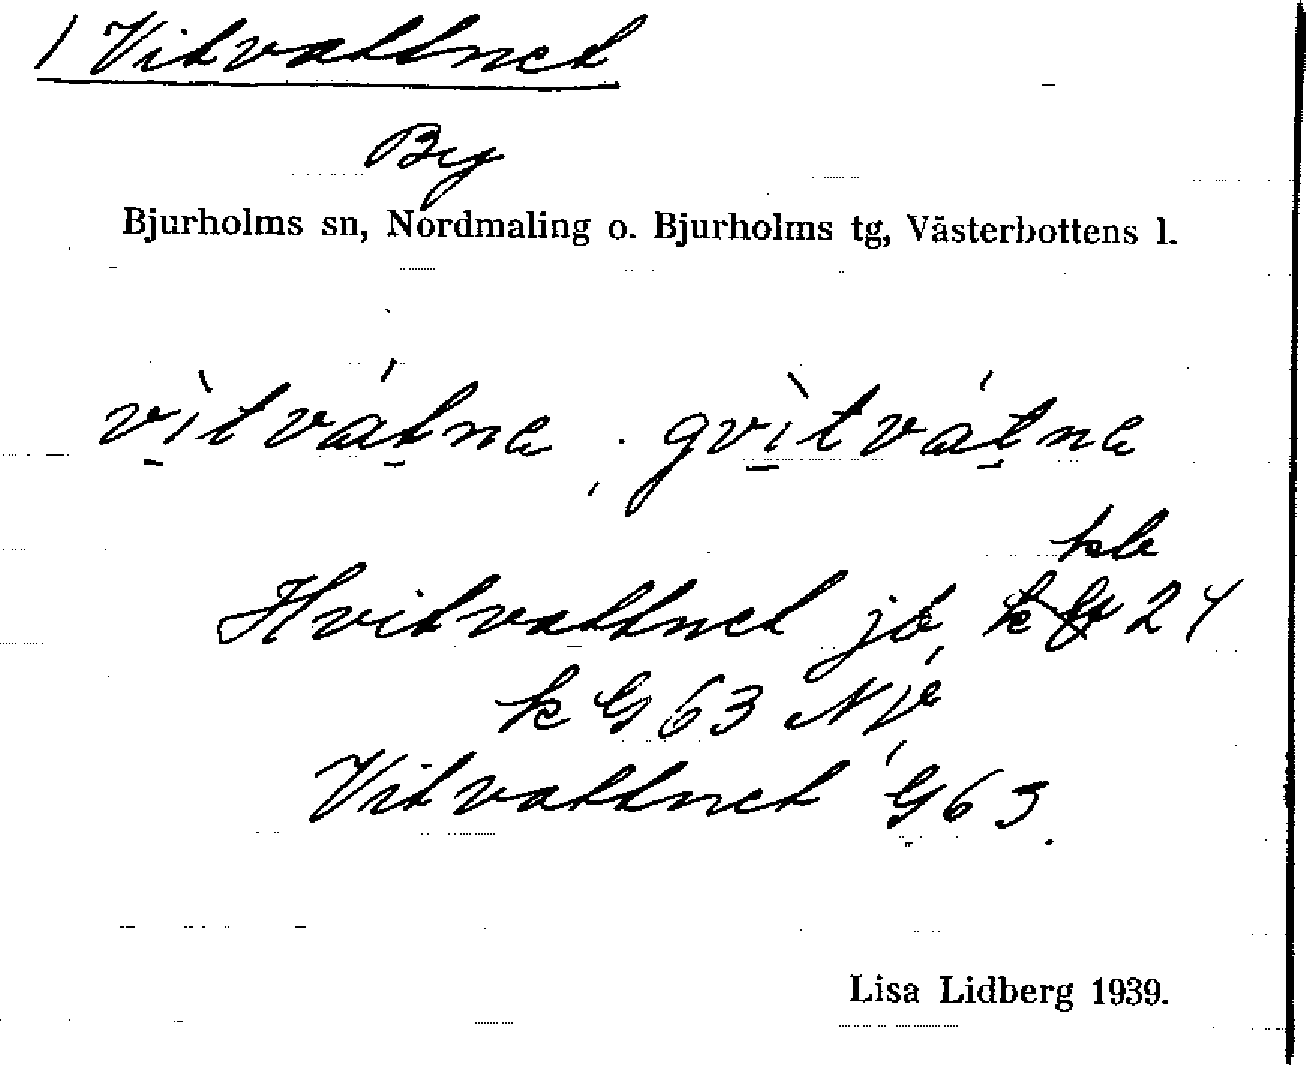 1 Vitvattnet
By
Bjurholms sn, Nordmaling o. Bjurholms tg, Västerbottens l.
vìtvátnɐ, gvìtvátnɐ
kb
Hvitvattnet jb, k 24
k G 63 NV,
Vitvattnet G 63.
Lisa Lidberg 1939.